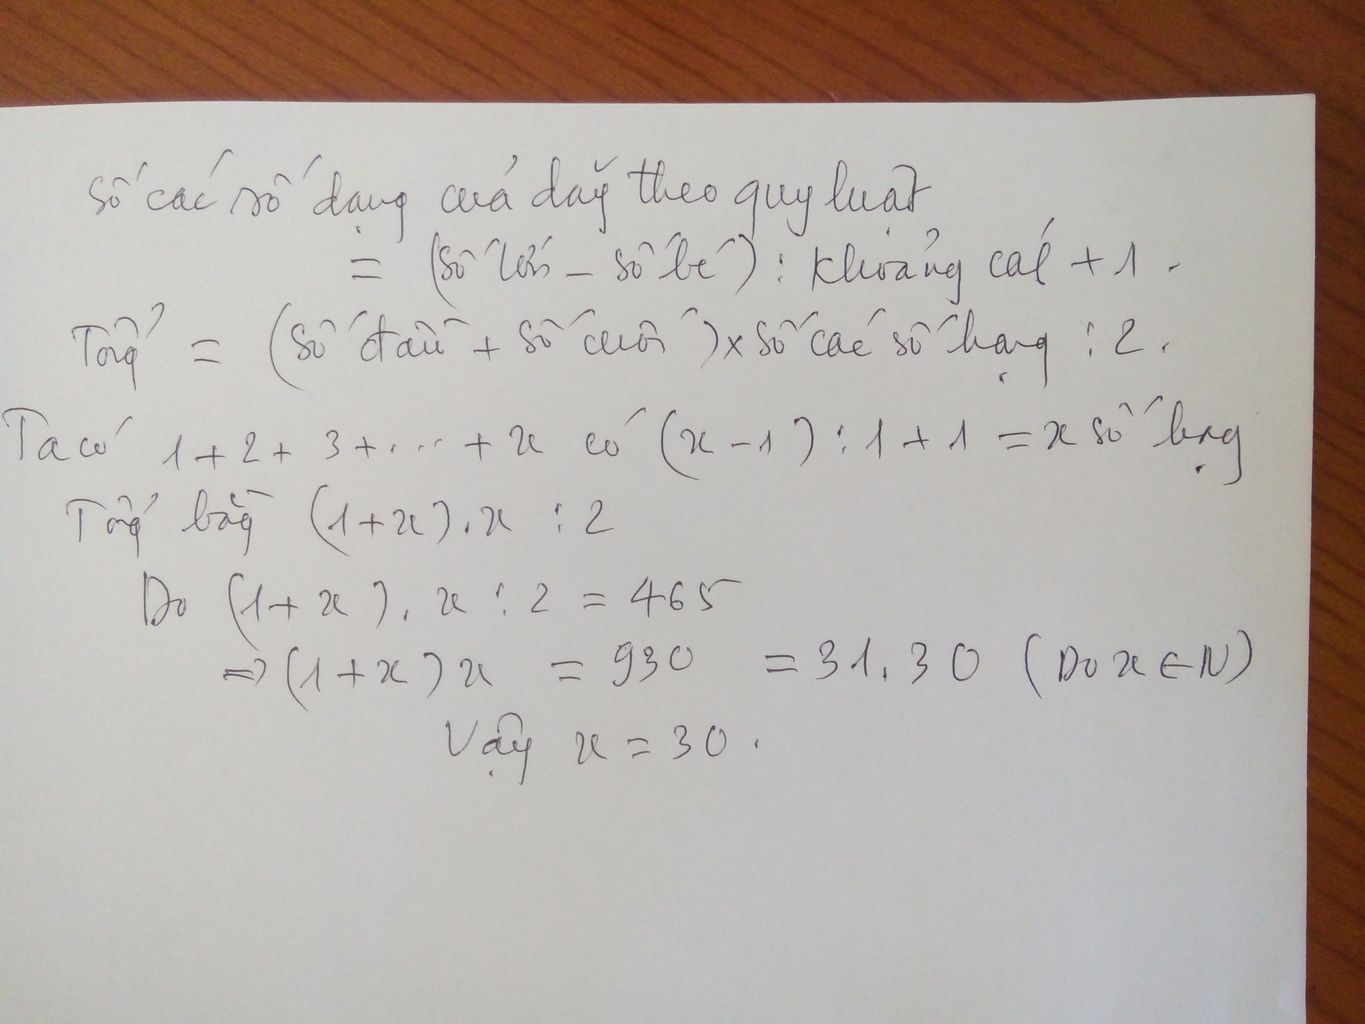 Số các số dạng của dãy theo quy luật
= (số lớn - số bé) : khoảng các + 1.
Tổng = (số đầu + số cuối) x số các số hạng : 2.
Ta có 1 + 2 + 3 + ... + x có (x - 1) : 1 + 1 = x số hạng
Tổng bằng (1 + x) . x : 2
Do (1 + x) . x : 2 = 465
=> (1 + x) x = 930 = 31 . 30 (Do x ∈ N)
Vậy x = 30 .